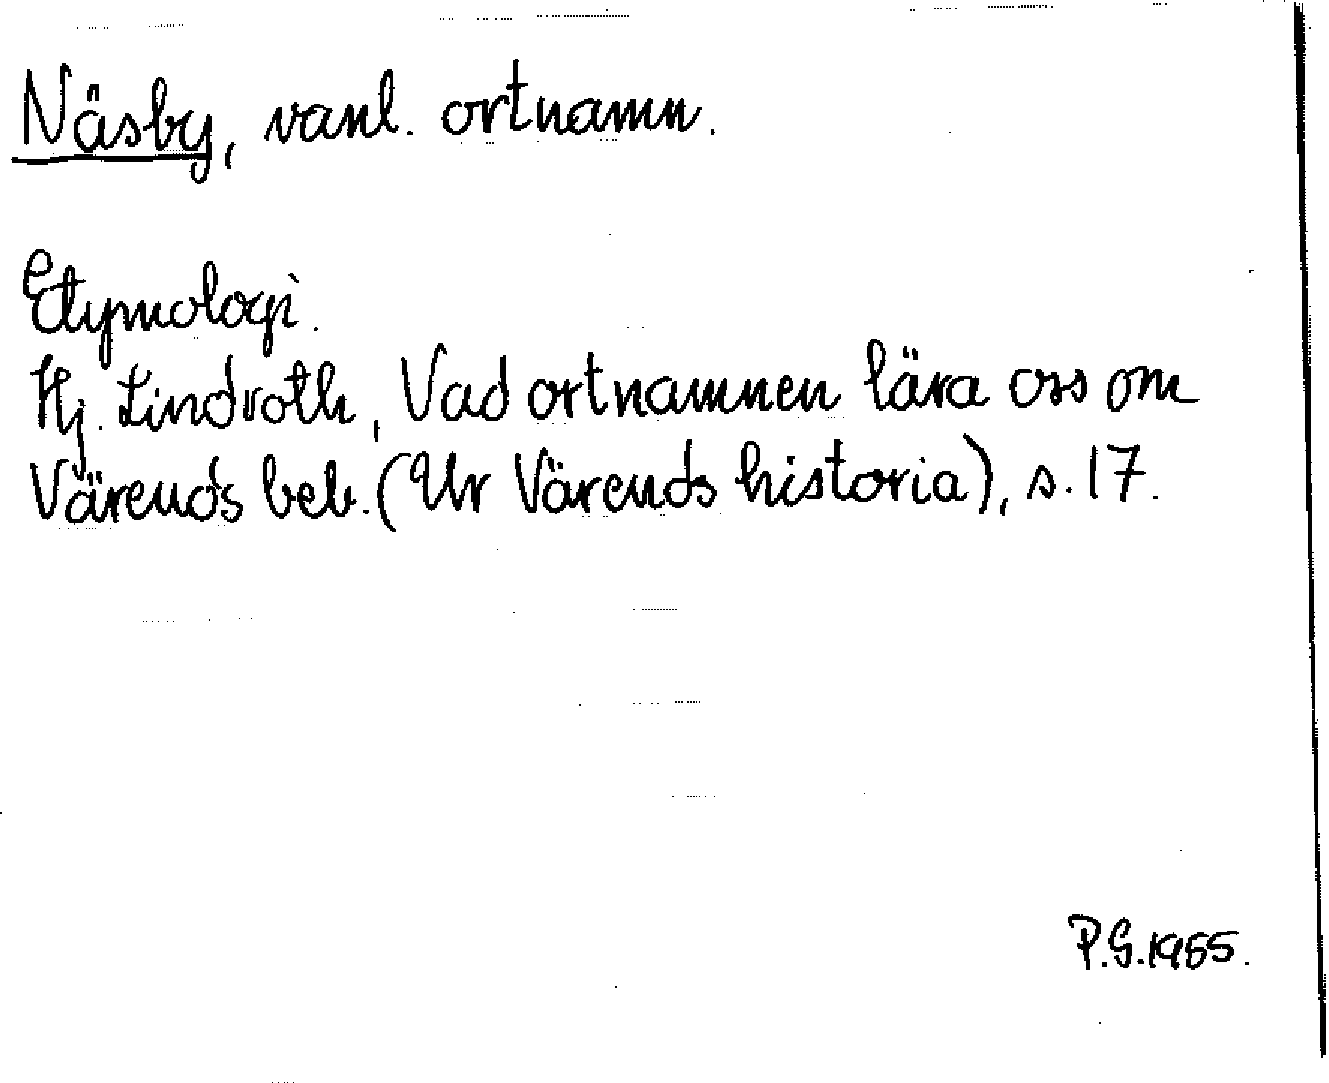 Näsby, vanl. ortnamn.
Etymologi.
Hj. Lindroth, Vad ortnamnen lära oss om
Värends beb. (Ur Värends historia), s. 17.
P.G. 1955.